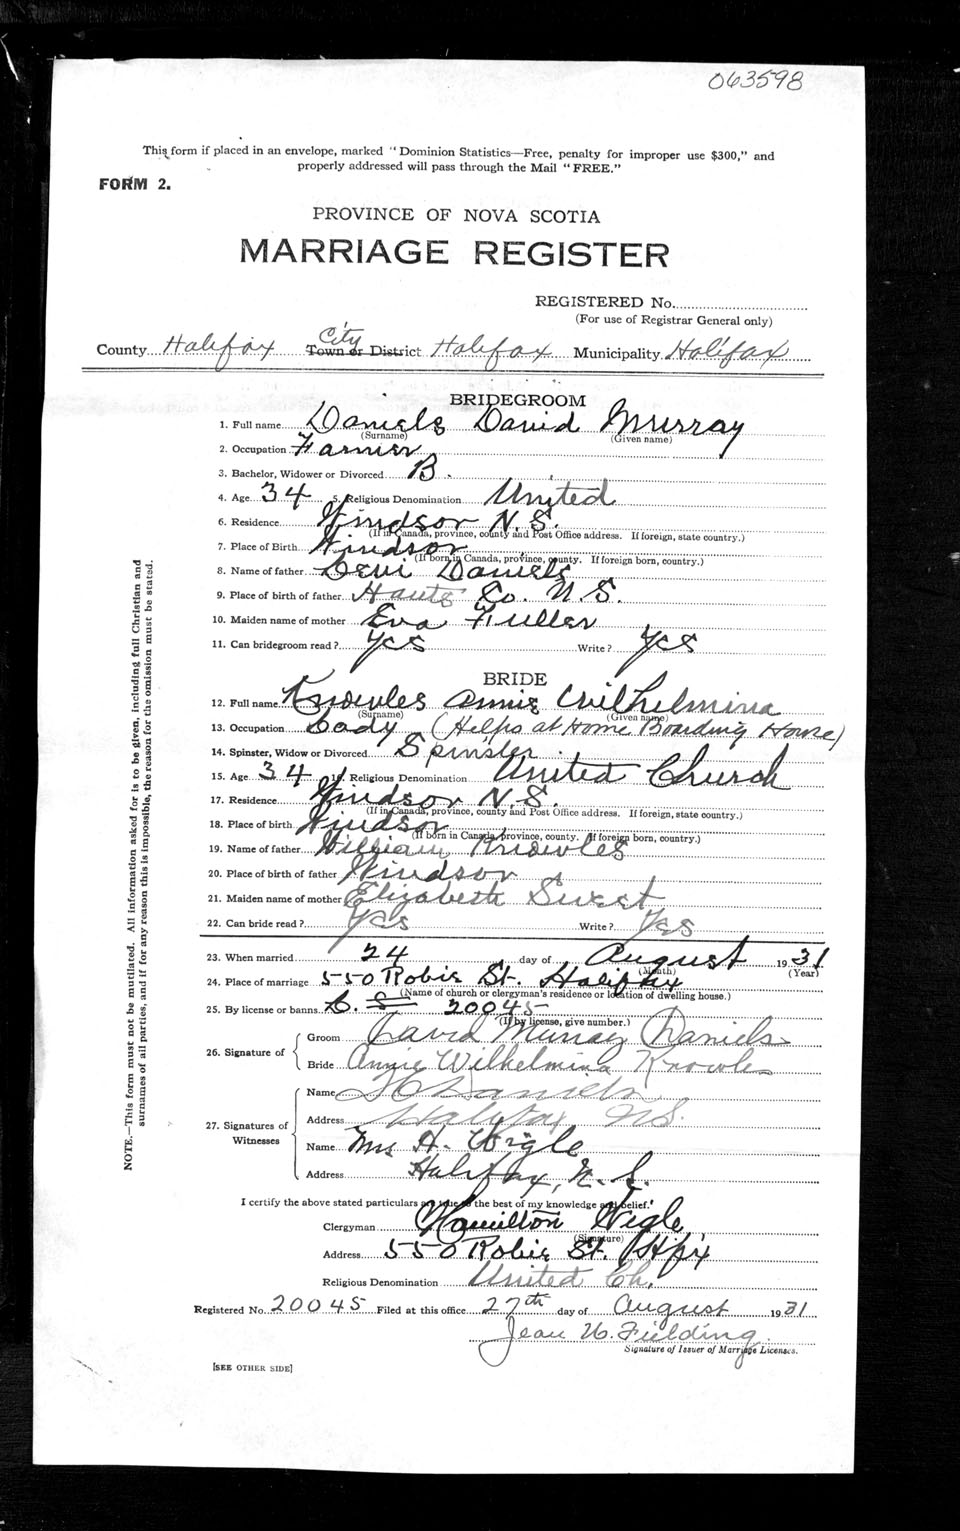 063598
This form if placed in an envelope, marked "Dominion Statistics—Free, penalty for improper use $300," and
properly addressed will pass through the Mail "FREE."
FORM 2.
PROVINCE OF NOVA SCOTIA
MARRIAGE REGISTER
REGISTERED No.
(For use of Registrar General only)
City
County Halifax Town or District Halifax Municipality Halifax
BRIDEGROOM
1. Full name Daniels David Murray
(Surname) (Given name)
2. Occupation Farmer
3. Bachelor, Widower or Divorced B.
4. Age 34 5. Religious Denomination United
6. Residence Windsor N.S.
(If in Canada, province, county and Post Office address. If foreign, state country.)
7. Place of Birth Windsor
(If born in Canada, province, county. If foreign born, country.)
8. Name of father Levi Daniels
9. Place of birth of father Hants Co. N.S.
10. Maiden name of mother Eva Fuller
11. Can bridegroom read? Yes Write? Yes
BRIDE
12. Full name Knowles Annie Wilhelmina
(Surname) (Given name)
13. Occupation Lady (Helps at Home Boarding House)
14. Spinster, Widow or Divorced Spinster
15. Age 34 16. Religious Denomination United Church
17. Residence Windsor N.S.
(If in Canada, province, county and Post Office address. If foreign, state country.)
18. Place of birth Windsor
(If born in Canada, province, county. If foreign born, country.)
19. Name of father William Knowles
20. Place of birth of father Windsor
21. Maiden name of mother Elizabeth Sweet
22. Can bride read? Yes Write? Yes
23. When married 24 day of August 1931
(Month) (Year)
24. Place of marriage 550 Robie St. Halifax
(Name of church or clergyman's residence or location of dwelling house.)
25. By license or banns 20045
(If by license, give number.)
26. Signature of
Groom David Murray Daniels
Bride Annie Wilhelmina Knowles
27. Signatures of Witnesses
Name Daniels
Address Halifax N.S.
Name Mrs H. Wigle
Address Halifax, N.S.
I certify the above stated particulars are true to the best of my knowledge and belief.
Clergyman Hamilton Wigle
(Signature)
Address 550 Robie St. Hfx
Religious Denomination United Ch.
Registered No. 20045 Filed at this office 27th day of August 1931
Jean W. Fielding
Signature of Issuer of Marriage Licenses.
[SEE OTHER SIDE]
NOTE.—This form must not be mutilated. All information asked for is to be given, including full Christian and
surnames of all parties, and if for any reason this is impossible, the reason for the omission must be stated.